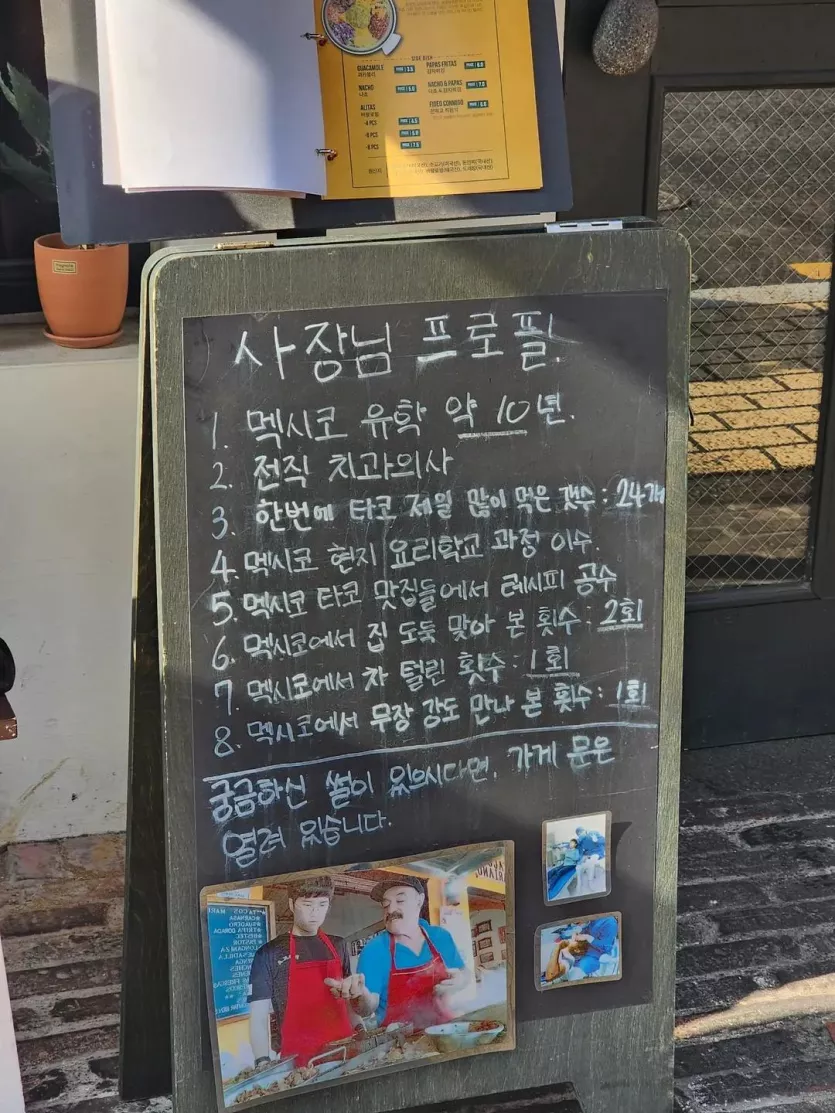 SIDE DISH
GUACAMOLE
PAPAS FRITAS
NACHO
NACHO & PAPAS
ALITAS
사장님 프로필.
1. 멕시코 유학 약 10년.
2. 전직 치과의사
3. 한번에 타코 제일 많이 먹은 갯수 : 24개
4. 멕시코 현지 요리학교 과정 이수.
5. 멕시코 타코 맛집들에서 레시피 공수
6. 멕시코에서 집 도둑 맞아 본 횟수 : 2회
7. 멕시코에서 차 털린 횟수 : 1회
8. 멕시코에서 무장 강도 만나 본 횟수 : 1회
궁금하신 썰이 있으시다면, 가게 문은
열려 있습니다.